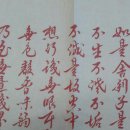 如是舍利子是
不生不滅不垢
不減是故空中
想行識無眼耳
無色聲香味
乃至無意識